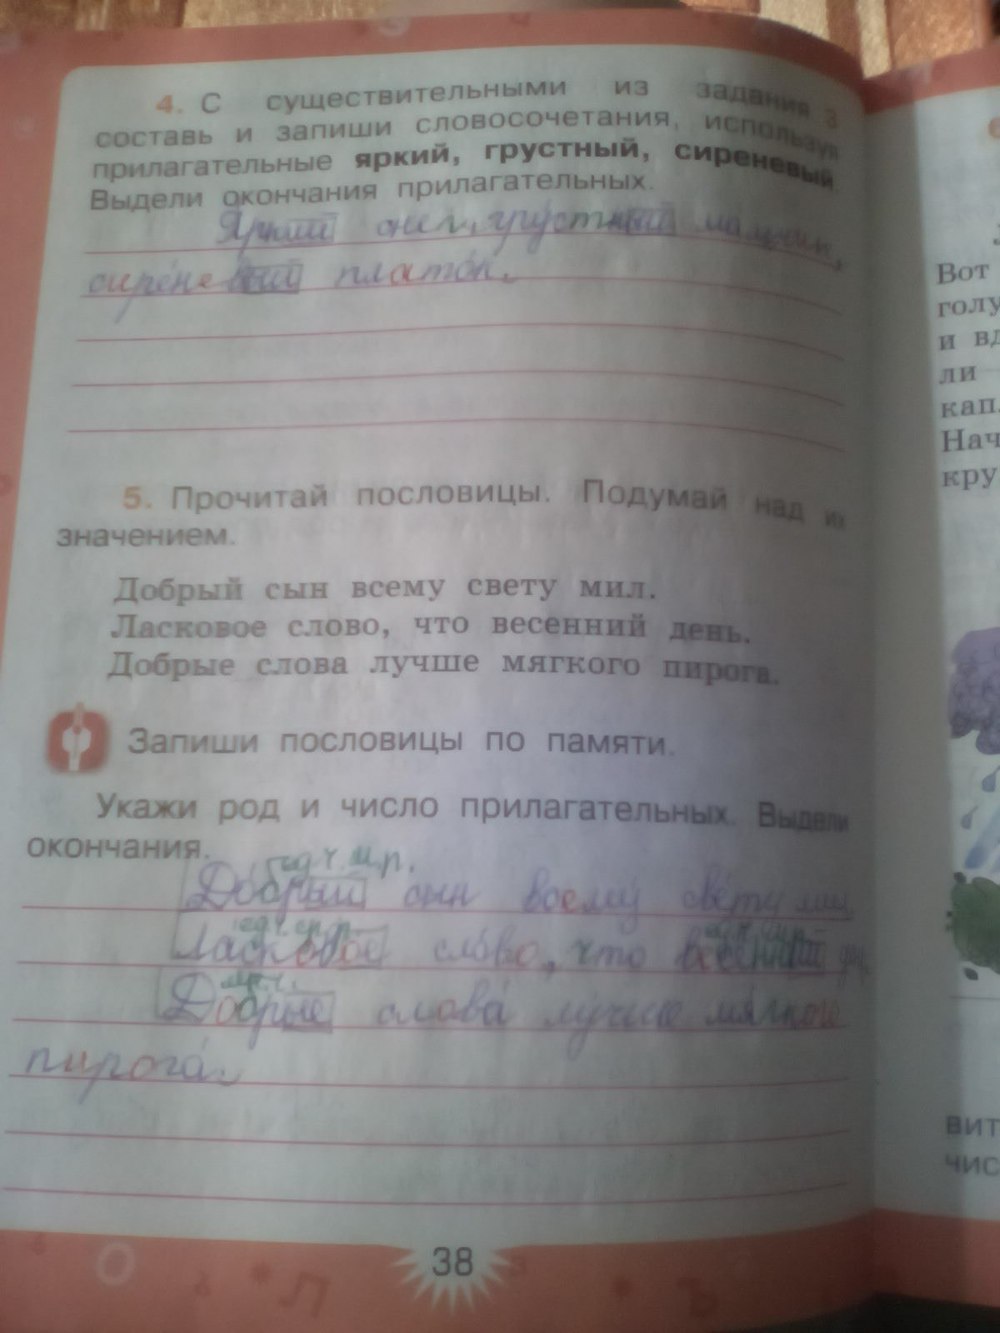 4. С существительными из задания 3
составь и запиши словосочетания, используя
прилагательные яркий, грустный, сиреневый.
Выдели окончания прилагательных.
Яркий грустный мальчик,
сиреневый платок.
5. Прочитай пословицы. Подумай над их
значением.
Добрый сын всему свету мил.
Ласковое слово, что весенний день.
Добрые слова лучше мягкого пирога.
Запиши пословицы по памяти.
Укажи род и число прилагательных. Выдели
окончания.
ед.ч. м.р.
Добрый сын всему свету мил
ед.ч. ср.р. ед.ч. м.р.
Ласковое слово, что весенний
мн.ч.
Добрые слова лучше мягкого
пирога.
38
Вот
голу
и вд
ли
кап
Нач
кру
вит
чис